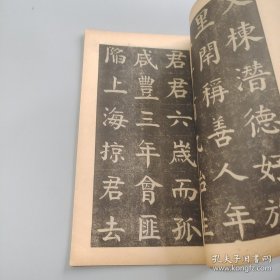 棟潛德
里閈稱善人年
君君六歲而孤
咸豐三年會匪
陷上海掠君去
孔夫子旧书网